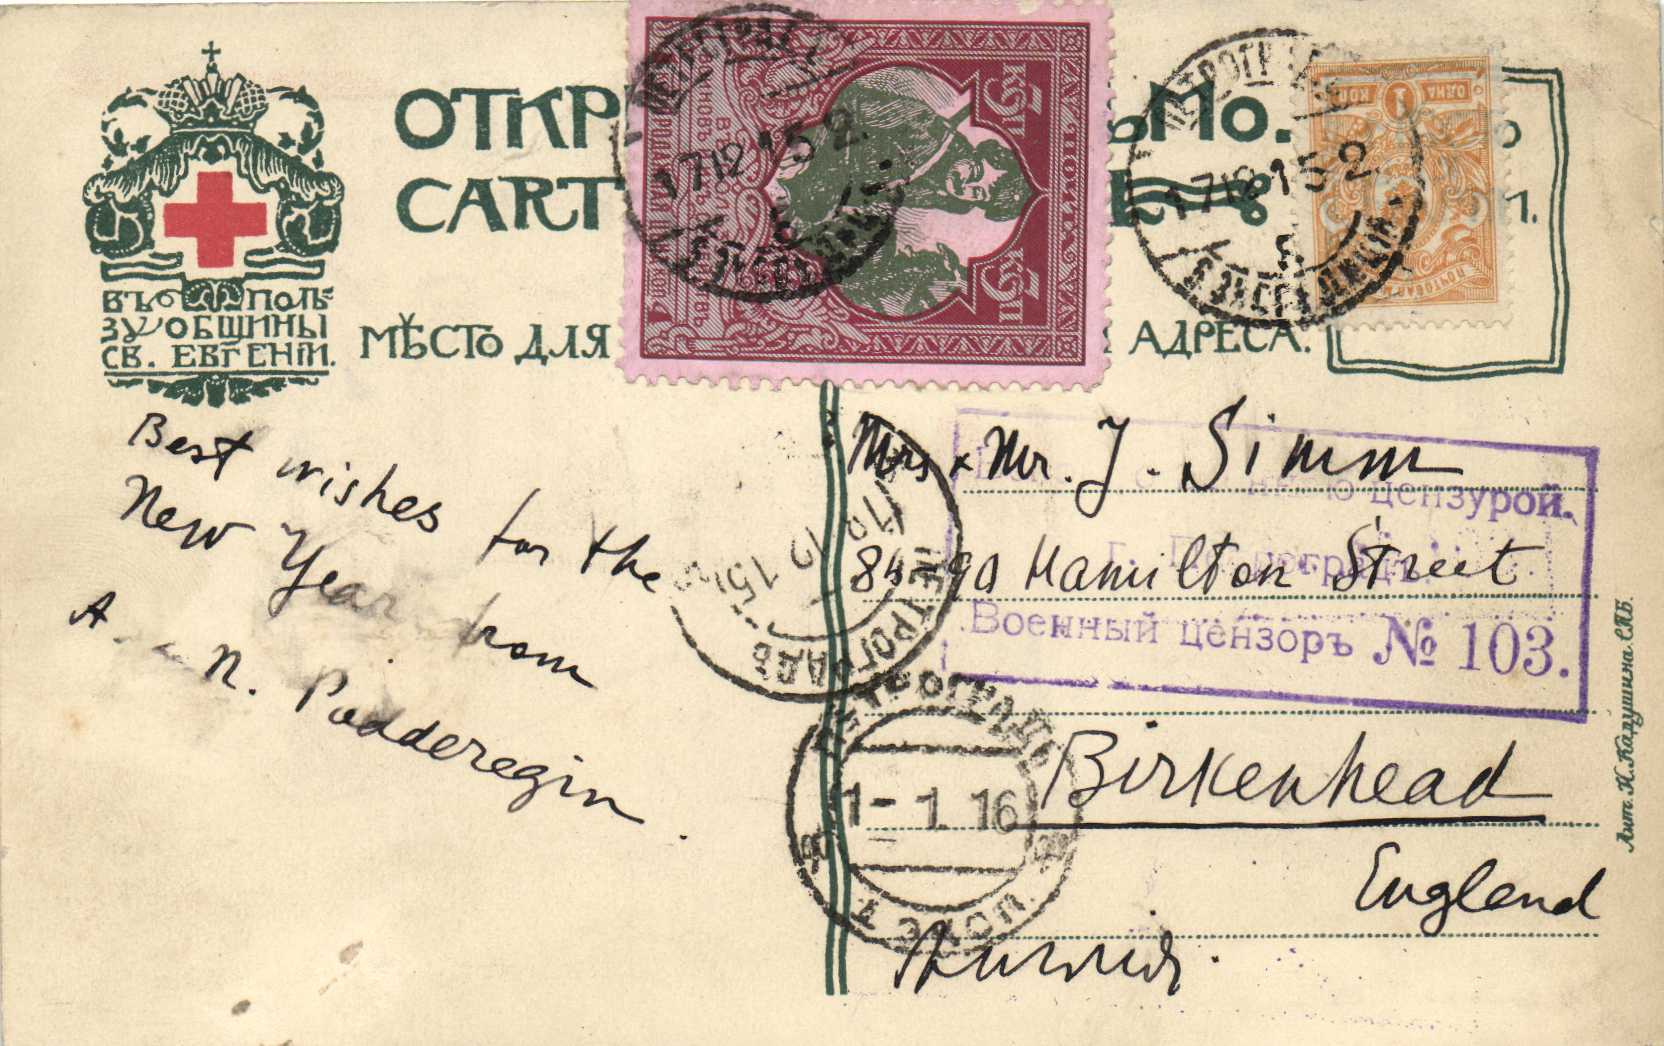 ВЪ ПОЛЬ-
ЗУ ОБЩИНЫ
СВ. ЕВГЕНІИ.
ОТКР ЬМО.
CART
МѢСТО ДЛЯ АДРЕСА.
1 ОДНА КОП
17 12 15 2
17 12 15 2
Best wishes for the
New Year from
A N. Podderegin.
Mrs & Mr. J. Simm
Hamilton Street
Birkenhead
England
цензурой.
Военный цензоръ № 103.
ПЕТРОГРАДЪ
ПЕТРОГРАДЪ
1-1.16
Лит. Н. Кадушина. СПБ.